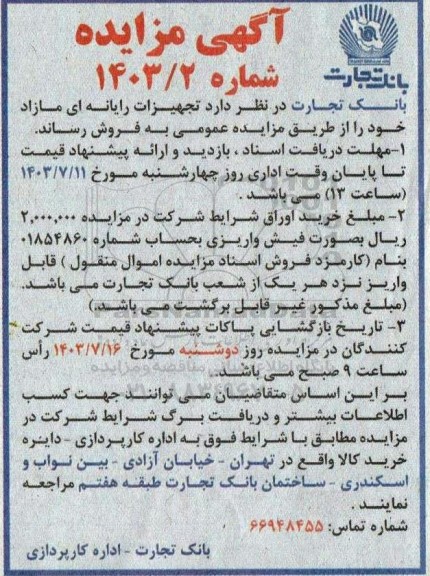 آگهی مزایده
شماره ۱۴۰۳/۲
بانک تجارت
بانک تجارت در نظر دارد تجهیزات رایانه ای مازاد
خود را از طریق مزایده عمومی به فروش رساند.
۱-مهلت دریافت اسناد ، بازدید و ارائه پیشنهاد قیمت
تا پایان وقت اداری روز چهارشنبه مورخ ۱۴۰۳/۷/۱۱
(ساعت ۱۳) می باشد .
۲- مبلغ خرید اوراق شرایط شرکت در مزایده ۲,۰۰۰,۰۰۰
ریال بصورت فیش واریزی بحساب شماره ۰۱۸۵۴۸۶۰
بنام (کارمزد فروش اسناد مزایده اموال منقول ) قابل
واریز نزد هر یک از شعب بانک تجارت می باشد.
(مبلغ مذکور غیر قابل برگشت می باشد.)
۳- تاریخ بازگشایی پاکات پیشنهاد قیمت شرکت
کنندگان در مزایده روز دوشنبه مورخ ۱۴۰۳/۷/۱۶ رأس
ساعت ۹ صبح می باشد
بر این اساس متقاضیان می توانند جهت کسب
اطلاعات بیشتر و دریافت برگ شرایط شرکت در
مزایده مطابق با شرایط فوق به اداره کارپردازی - دایره
خرید کالا واقع در تهران - خیابان آزادی - بین نواب و
اسکندری - ساختمان بانک تجارت طبقه هفتم مراجعه
نمایند .
شماره تماس: ۶۶۹۴۸۴۵۵
بانک تجارت - اداره کارپردازی